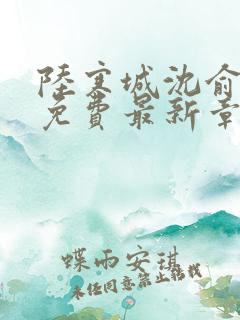 陸寒城沈俞
免費最新章
蝶雨安琪
未經同意禁止轉載